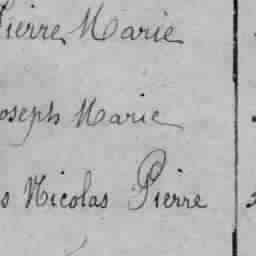 Pierre Marie
Joseph Marie
s Nicolas Pierre